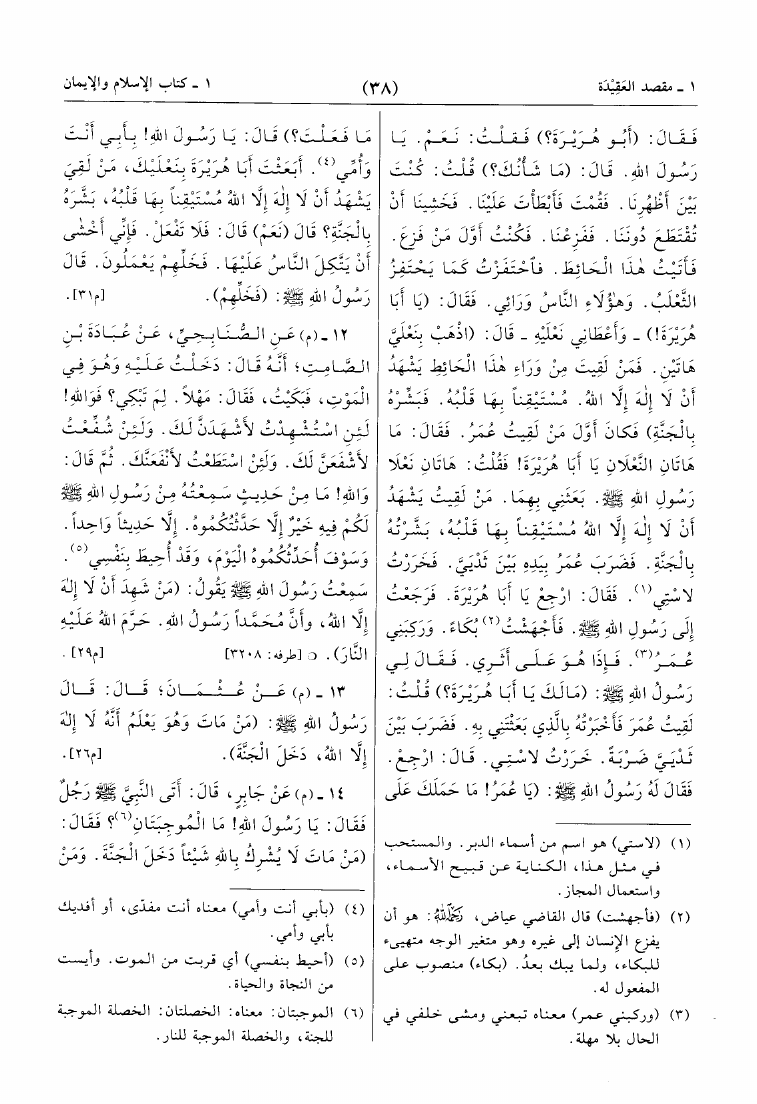 ١ ـ مقصد العَقِيْدَة
(٣٨)
١ ـ كتاب الإسلام والإيمان
فَقَالَ: (أَبُو هُرَيْرَةَ؟) فَقلْتُ: نَعَمْ. يَا
رَسُولَ اللهِ. قَالَ: (مَا شَأْنُكَ؟) قُلْتُ: كُنْتَ
بَيْنَ أَظْهُرِنَا. فَقُمْتَ فَأَبْطَأْتَ عَلَيْنَا. فَخَشِينَا أَنْ
تُقْتَطَعَ دُونَنَا. فَفَزِعْنَا. فَكُنْتُ أَوَّلَ مَنْ فَزِعَ.
فَأَتَيْتُ هٰذَا الْحَائِطَ. فَاحْتَفَزْتُ كَمَا يَحْتَفِزُ
الثَّعْلَبُ. وَهٰؤُلَاءِ النَّاسُ وَرَائِي. فَقَالَ: (يَا أَبَا
هُرَيْرَةَ!) ـ وَأَعْطَانِي نَعْلَيْهِ ـ قَالَ: (اذْهَبْ بِنَعْلَيَّ
هَاتَيْنِ. فَمَنْ لَقِيتَ مِنْ وَرَاءِ هٰذَا الْحَائِطِ يَشْهَدُ
أَنْ لَا إِلٰهَ إِلَّا اللهُ. مُسْتَيْقِناً بِهَا قَلْبُهُ. فَبَشِّرْهُ
بِالْجَنَّةِ) فَكانَ أَوَّلَ مَنْ لَقِيتُ عُمَرُ. فَقَالَ: مَا
هَاتَانِ النَّعْلَانِ يَا أَبَا هُرَيْرَةَ! فَقُلْتُ: هَاتَانِ نَعْلَا
رَسُولِ اللهِ ﷺ. بَعَثَنِي بِهِمَا. مَنْ لَقِيتُ يَشْهَدُ
أَنْ لَا إِلٰهَ إِلَّا اللهُ مُسْتَيْقِناً بِهَا قَلْبُهُ، بَشَّرْتُهُ
بِالْجَنَّةِ. فَضَرَبَ عُمَرُ بِيَدِهِ بَيْنَ ثَدْيَيَّ. فَخَرَرْتُ
لاسْتِي(١). فَقَالَ: ارْجِعْ يَا أَبَا هُرَيْرَةَ. فَرَجَعْتُ
إِلَى رَسُولِ اللهِ ﷺ. فَأَجْهَشْتُ(٢) بُكَاءً. وَرَكِبَنِي
عُمَرُ(٣). فَإِذَا هُوَ عَلَى أَثَرِي. فَقَالَ لِي
رَسُولُ اللهِ ﷺ: (مَالَكَ يَا أَبَا هُرَيْرَةَ؟) قُلْتُ:
لَقِيتُ عُمَرَ فَأَخْبَرْتُهُ بِالَّذِي بَعَثْتَنِي بِهِ. فَضَرَبَ بَيْنَ
ثَدْيَيَّ ضَرْبَةً. خَرَرْتُ لاسْتِي. قَالَ: ارْجِعْ.
فَقَالَ لَهُ رَسُولُ اللهِ ﷺ: (يَا عُمَرُ! مَا حَمَلَكَ عَلَى
(١) (لاستي) هو اسم من أسماء الدبر. والمستحب
في مثل هذا، الكناية عن قبيح الأسماء،
واستعمال المجاز.
(٢) (فأجهشت) قال القاضي عياض، رَحِمَهُ اللهُ: هو أن
يفزع الإنسان إلى غيره وهو متغير الوجه متهيىء
للبكاء، ولما يبك بعدُ. (بكاء) منصوب على
المفعول له.
(٣) (وركبني عمر) معناه تبعني ومشى خلفي في
الحال بلا مهلة.
مَا فَعَلْتَ؟) قَالَ: يَا رَسُولَ اللهِ! بِأَبِي أَنْتَ
وَأُمِّي(٤). أَبَعَثْتَ أَبَا هُرَيْرَةَ بِنَعْلَيْكَ، مَنْ لَقِيَ
يَشْهَدُ أَنْ لَا إِلٰهَ إِلَّا اللهُ مُسْتَيْقِناً بِهَا قَلْبُهُ، بَشَّرَهُ
بِالْجَنَّةِ؟ قَالَ (نَعَمْ) قَالَ: فَلَا تَفْعَلْ. فَإِنِّي أَخْشَى
أَنْ يَتَّكِلَ النَّاسُ عَلَيْهَا. فَخَلِّهِمْ يَعْمَلُونَ. قَالَ
رَسُولُ اللهِ ﷺ: (فَخَلِّهِمْ). [م٣١].
١٢ ـ (م) عَنِ الصُّنَابِحِيِّ، عَنْ عُبَادَةَ بْنِ
الصَّامِتِ؛ أَنَّهُ قَالَ: دَخَلْتُ عَلَيْهِ وَهُوَ فِي
الْمَوْتِ، فَبَكَيْتُ، فَقَالَ: مَهْلاً. لِمَ تَبْكِي؟ فَوَاللهِ!
لَئِنِ اسْتُشْهِدْتُ لأَشْهَدَنَّ لَكَ. وَلَئِنْ شُفِّعْتُ
لأَشْفَعَنَّ لَكَ. وَلَئِنْ اسْتَطَعْتُ لأَنْفَعَنَّكَ. ثُمَّ قَالَ:
وَاللهِ! مَا مِنْ حَدِيثٍ سَمِعْتُهُ مِنْ رَسُولِ اللهِ ﷺ
لَكُمْ فِيهِ خَيْرٌ إِلَّا حَدَّثْتُكُمُوهُ. إِلَّا حَدِيثاً وَاحِداً.
وَسَوْفَ أُحَدِّثُكُمُوهُ الْيَوْمَ، وَقَدْ أُحِيطَ بِنَفْسِي(٥).
سَمِعْتُ رَسُولَ اللهِ ﷺ يَقُولُ: (مَنْ شَهِدَ أَنْ لَا إِلٰهَ
إِلَّا اللهُ، وَأَنَّ مُحَمَّداً رَسُولُ اللهِ. حَرَّمَ اللهُ عَلَيْهِ
النَّارَ). ○ [طرفه: ٣٢٠٨] [م٢٩].
١٣ ـ (م) عَنْ عُثْمَانَ؛ قَالَ: قَالَ
رَسُولُ اللهِ ﷺ: (مَنْ مَاتَ وَهُوَ يَعْلَمُ أَنَّهُ لَا إِلٰهَ
إِلَّا اللهُ، دَخَلَ الْجَنَّةَ). [م٢٦].
١٤ ـ (م) عَنْ جَابِرٍ، قَالَ: أَتَى النَّبِيَّ ﷺ رَجُلٌ
فَقَالَ: يَا رَسُولَ اللهِ! مَا الْمُوجِبَتَانِ(٦)؟ فَقَالَ:
(مَنْ مَاتَ لَا يُشْرِكُ بِاللهِ شَيْئاً دَخَلَ الْجَنَّةَ. وَمَنْ
(٤) (بأبي أنت وأمي) معناه أنت مفدّى، أو أفديك
بأبي وأمي.
(٥) (أحيط بنفسي) أي قربت من الموت. وأيست
من النجاة والحياة.
(٦) الموجبتان: معناه: الخصلتان: الخصلة الموجبة
للجنة، والخصلة الموجبة للنار.